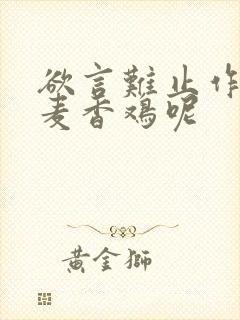 欲言難止作
麦香鸡呢
黄金獅